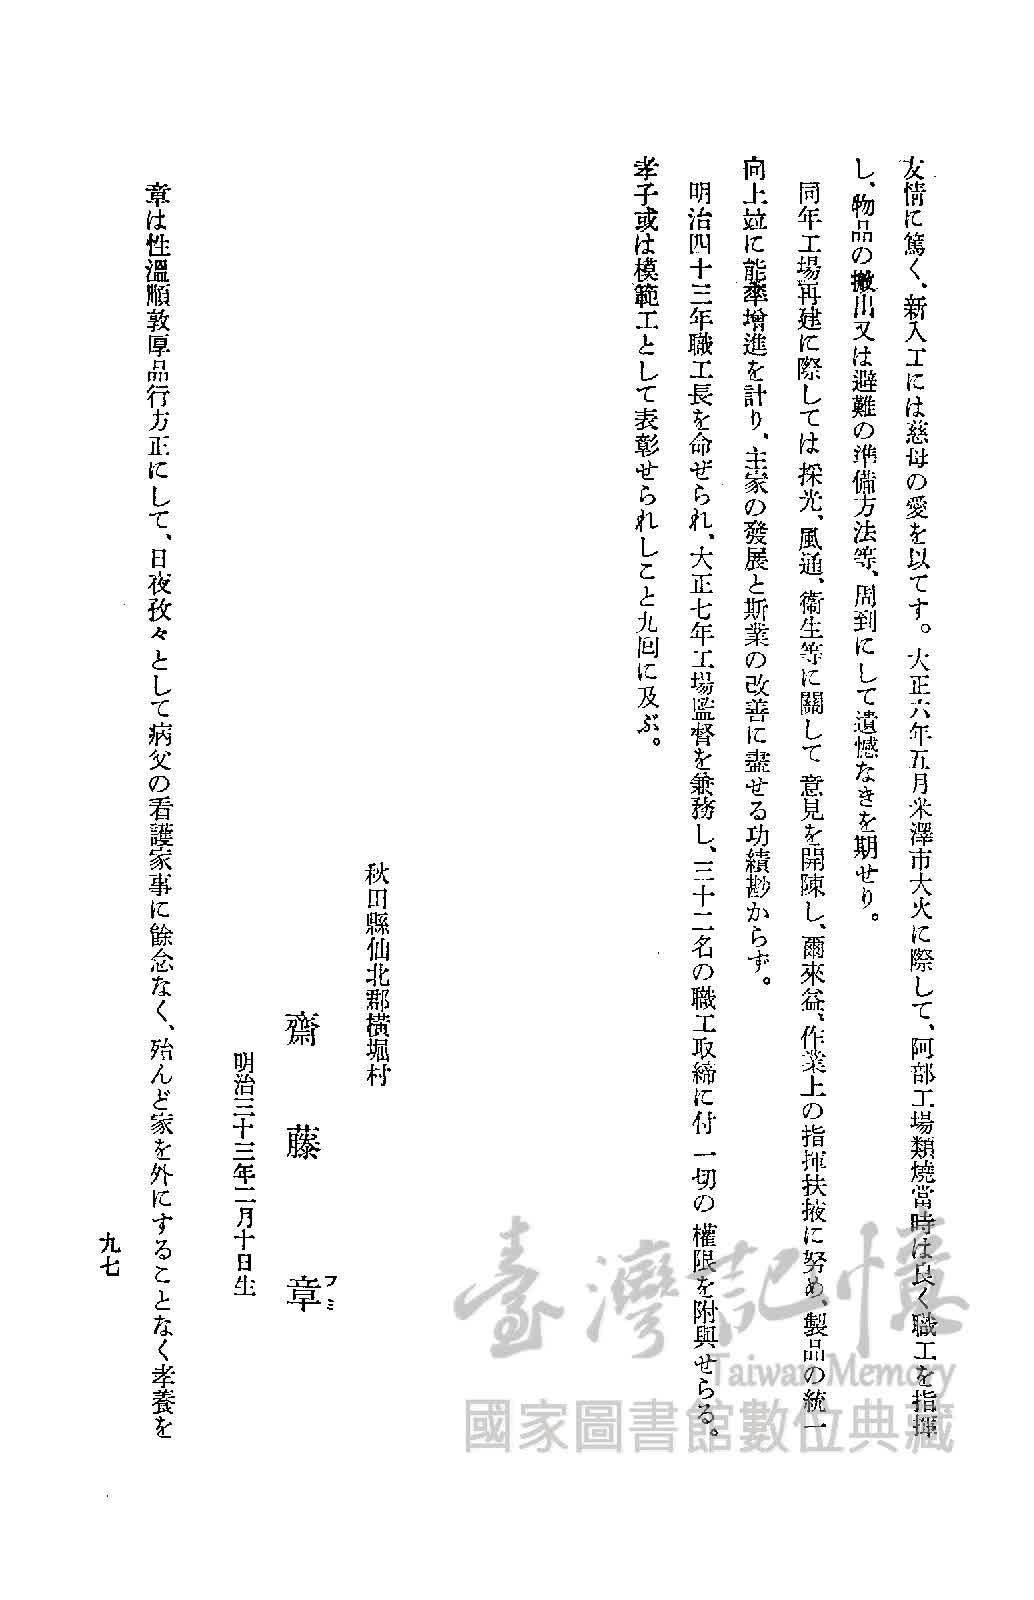 友情に篤く、新入工には慈母の愛を以てす。大正六年五月米澤市大火に際して、阿部工場類燒當時は良く職工を指揮
し、物品の搬出又は避難の準備方法等、周到にして遺憾なきを期せり。
同年工場再建に際しては採光、風通、衞生等に關して意見を開陳し、爾來益、作業上の指揮扶掖に努め、製品の統一
向上竝に能率增進を計り、主家の發展と斯業の改善に盡せる功績尠からず。
明治四十三年職工長を命ぜられ、大正七年工場監督を兼務し、三十二名の職工取締に付一切の權限を附與せらる。
孝子或は模範工として表彰せられしこと九回に及ぶ。
秋田縣仙北郡橫堀村
齋藤章
フミ
明治三十三年二月十日生
章は性溫順敦厚品行方正にして、日夜孜々として病父の看護家事に餘念なく、殆んど家を外にすることなく孝養を
九七
臺灣記憶
Taiwan Memory
國家圖書館數位典藏